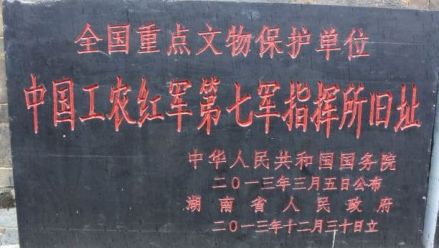 全国重点文物保护单位
中国工农红军第七军指挥所旧址
中华人民共和国国务院
二〇一三年三月五日公布
湖南省人民政府
二〇一三年十二月三十日立